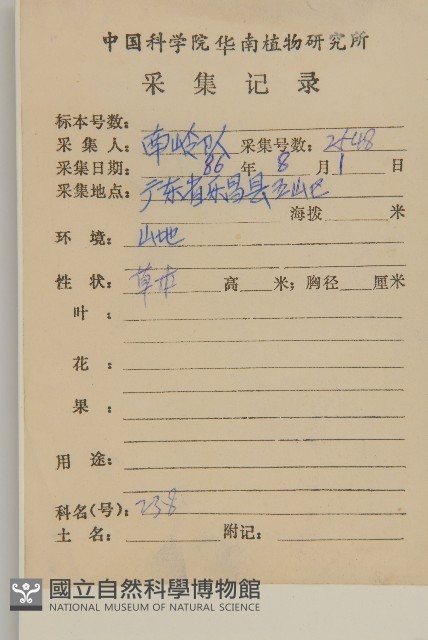 中国科学院华南植物研究所
采集记录
标本号数：
采集人：南岭队 采集号数：2548
采集日期：86年8月1日
采集地点：广东省乐昌县五山区
海拨 米
环境：山地
性状：草本 高 米；胸径 厘米
叶：
花：
果：
用途：
科名(号)：238
土名： 附记：
國立自然科學博物館
NATIONAL MUSEUM OF NATURAL SCIENCE